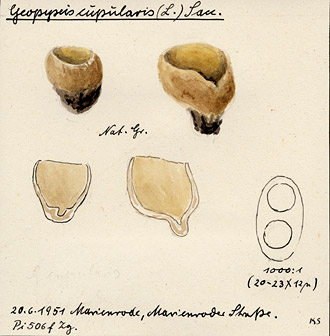 Geopyxis cupularis (L.) Sacc.
Nat. Gr.
1000:1
(20-23 x 12µ)
20.6.1951 Marienrode, Marienroder Straße.
Pi 506 f Zg.
KS